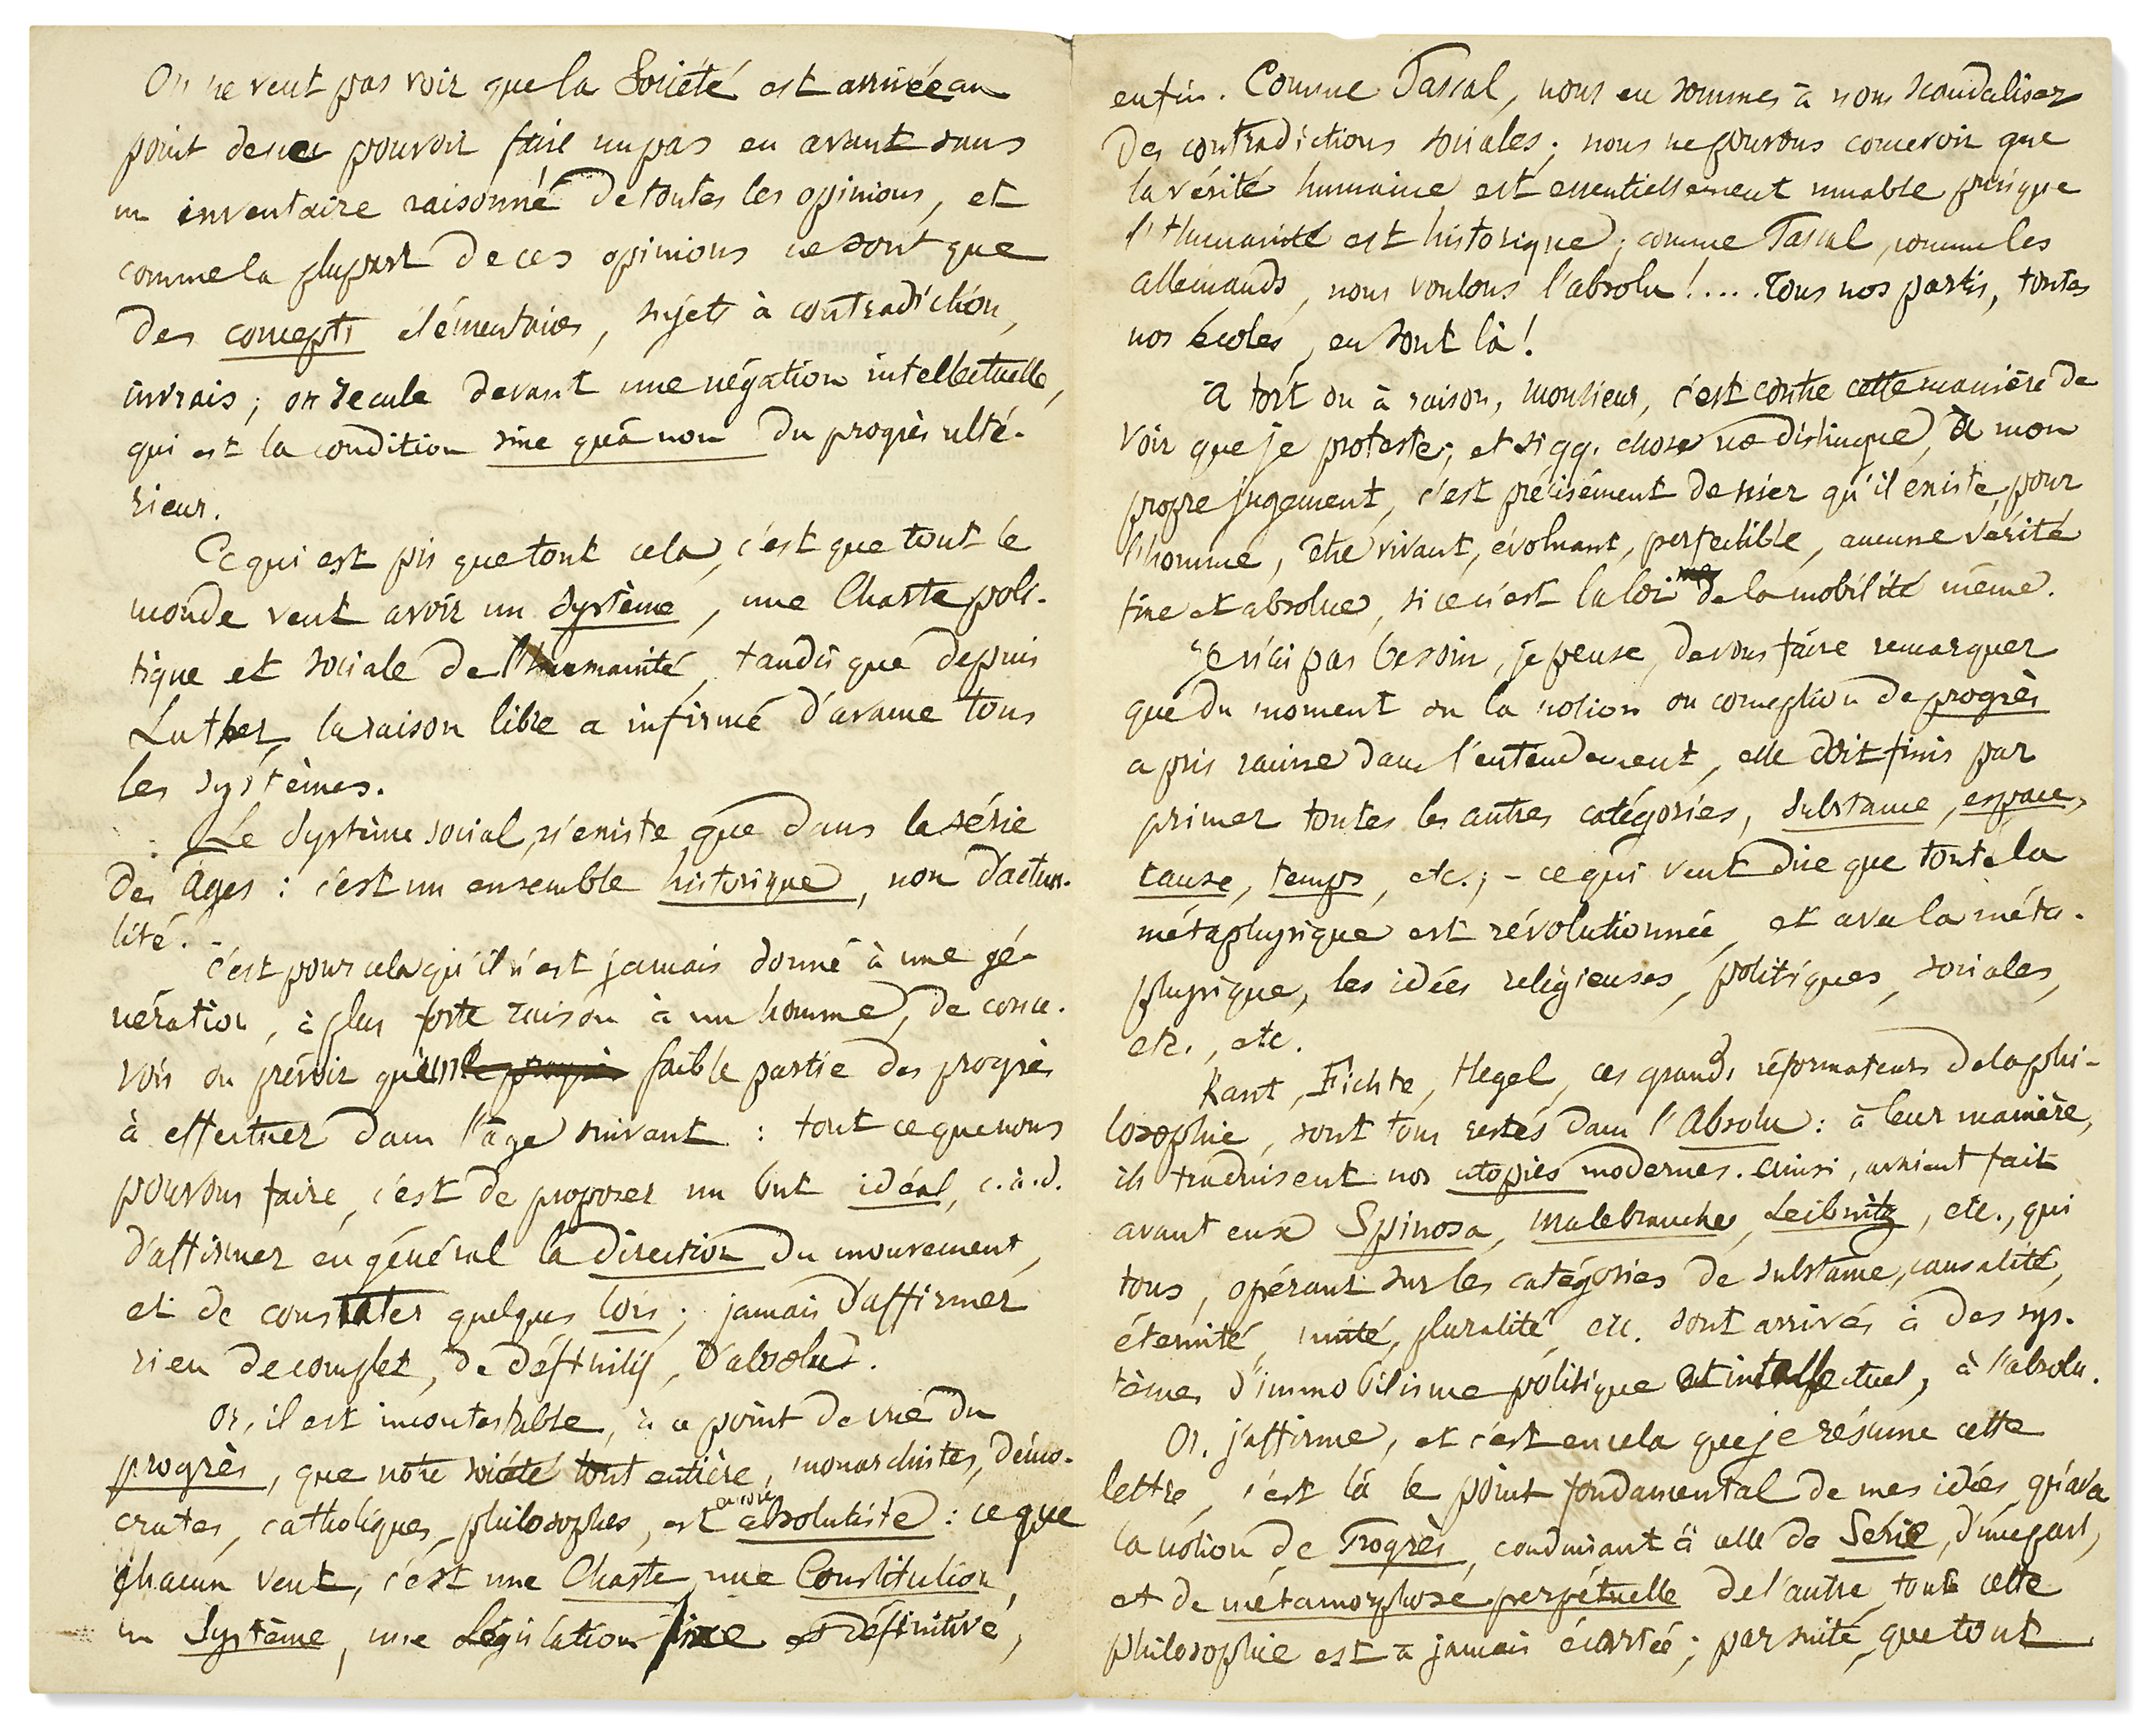 On ne veut pas voir que la Société est arrivée au
point de ne pouvoir faire un pas en avant sans
un inventaire raisonné de toutes les opinions, et
comme la plupart de ces opinions ne sont que
des concepts élémentaires, sujets à contradiction,
invrais ; on recule devant une négation intellectuelle,
qui est la condition sine quâ non du progrès ulté-
rieur.
Ce qui est pis que tout cela, c'est que tout le
monde veut avoir un système, une Charte poli-
tique et sociale de l'humanité, tandis que depuis
Luther, la raison libre a infirmé d'avance tous
les systèmes.
Le Système social n'existe que dans la série
des âges : c'est un ensemble historique, non d'actua-
lité. -
C'est pour cela qu'il n'est jamais donné à une gé-
nération, à plus forte raison à un homme, de conce-
voir ou prévoir qu'une faible partie des progrès
à effectuer dans l'âge suivant : tout ce que nous
pouvons faire, c'est de proposer un but idéal, c. à. d.
d'affirmer en général la direction du mouvement,
et de constater quelques lois ; jamais d'affirmer
rien de complet, de définitif, d'absolu.
Or, il est incontestable, à ce point de vue du
progrès, que notre société tout entière, monarchistes, démo-
crates, catholiques, philosophes, est encore absolutiste : ce que
chacun veut, c'est une Charte, une Constitution,
un Système, une Législation fixe et définitive,
enfin. Comme Pascal, nous en sommes à nous scandaliser
des contradictions sociales ; nous ne pouvons concevoir que
la vérité humaine est essentiellement muable puisque
l'Humanité est historique ; comme Pascal, comme les
allemands, nous voulons l'absolu !.... Tous nos partis, toutes
nos écoles, en sont là !
A tort ou à raison, Monsieur, c'est contre cette manière de
voir que je proteste ; et si qq. chose me distingue, à mon
propre jugement, c'est précisément de nier qu'il existe, pour
l'homme, être vivant, évoluant, perfectible, aucune vérité
fixe et absolue, si ce n'est la loi de la mobilité même.
Je n'ai pas besoin, je pense, de vous faire remarquer
que du moment où la notion ou conception de progrès
a pris racine dans l'entendement, elle doit finir par
primer toutes les autres catégories, substance, espace,
cause, temps, etc. ; - ce qui veut dire que toute la
métaphysique est révolutionnée, et avec la méta-
physique, les idées religieuses, politiques, sociales,
etc., etc.
Kant, Fichte, Hegel, ces grands réformateurs de la phi-
losophie, sont tous restés dans l'Absolu : à leur manière,
ils traduisent nos utopies modernes. Ainsi, avaient fait
avant eux Spinosa, Malebranche, Leibnitz, etc., qui
tous, opérant sur les catégories de substance, causalité,
éternité, unité, pluralité, etc. sont arrivés à des sys-
tèmes d'immobilisme politique et intellectuel, à l'absolu.
Or, j'affirme, et c'est en cela que je résume cette
lettre, c'est là le point fondamental de mes idées, qu'avec
la notion de Progrès, conduisant à celle de Série, d'une part,
et de métamorphose perpétuelle de l'autre, toute cette
philosophie est à jamais écartée ; par suite, que tout